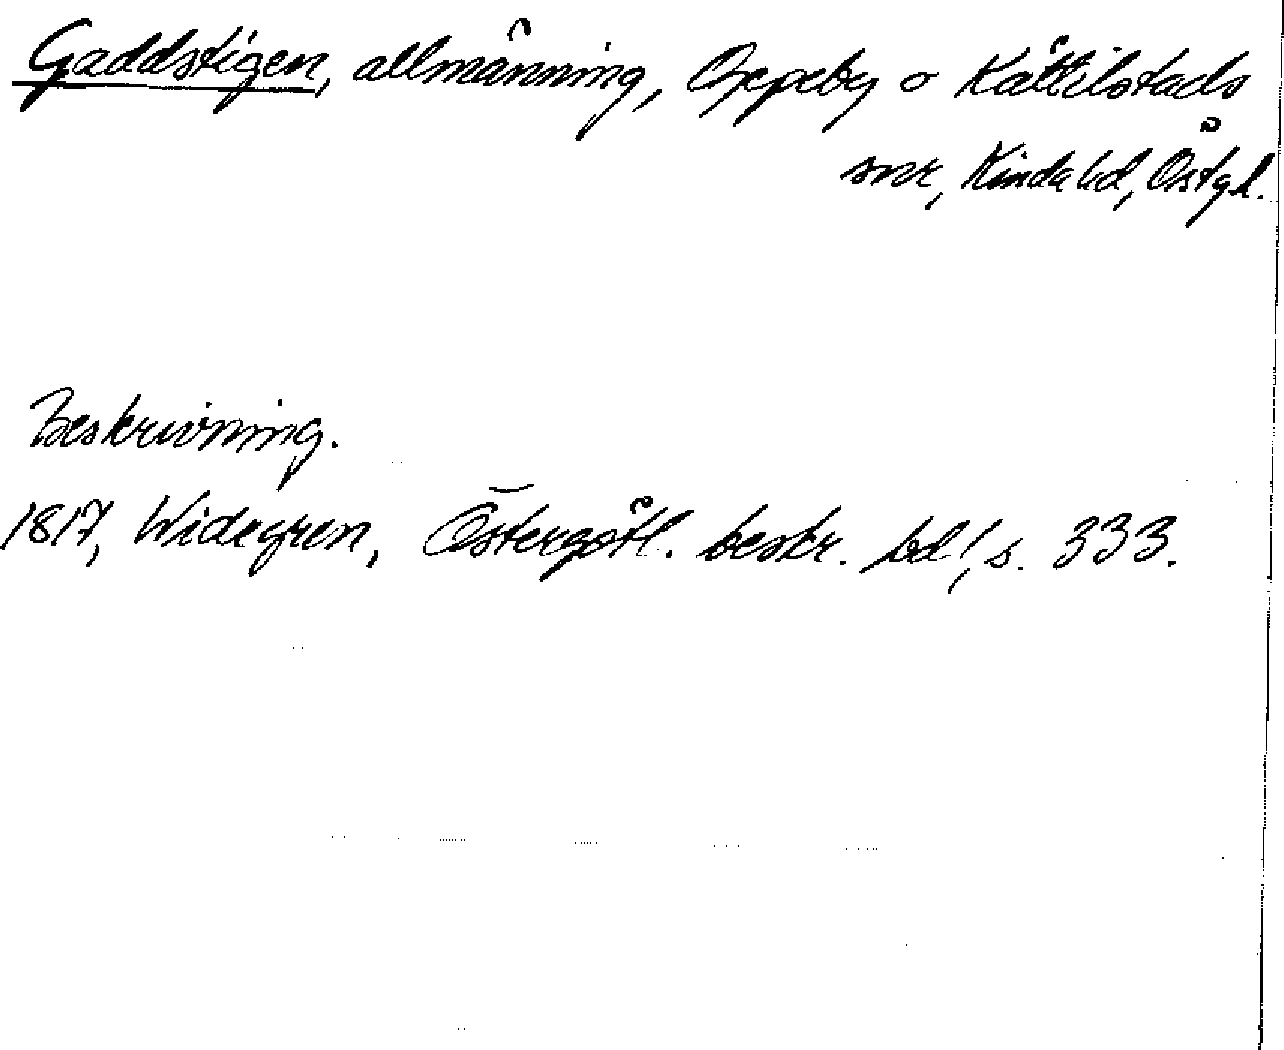 Gaddstigen, allmänning, Oppeby o Kättilstads
snr, Kinda hd, Östgl.
Beskrivning.
1817, Widegren, Östergötl. beskr. bd 1, s. 333.